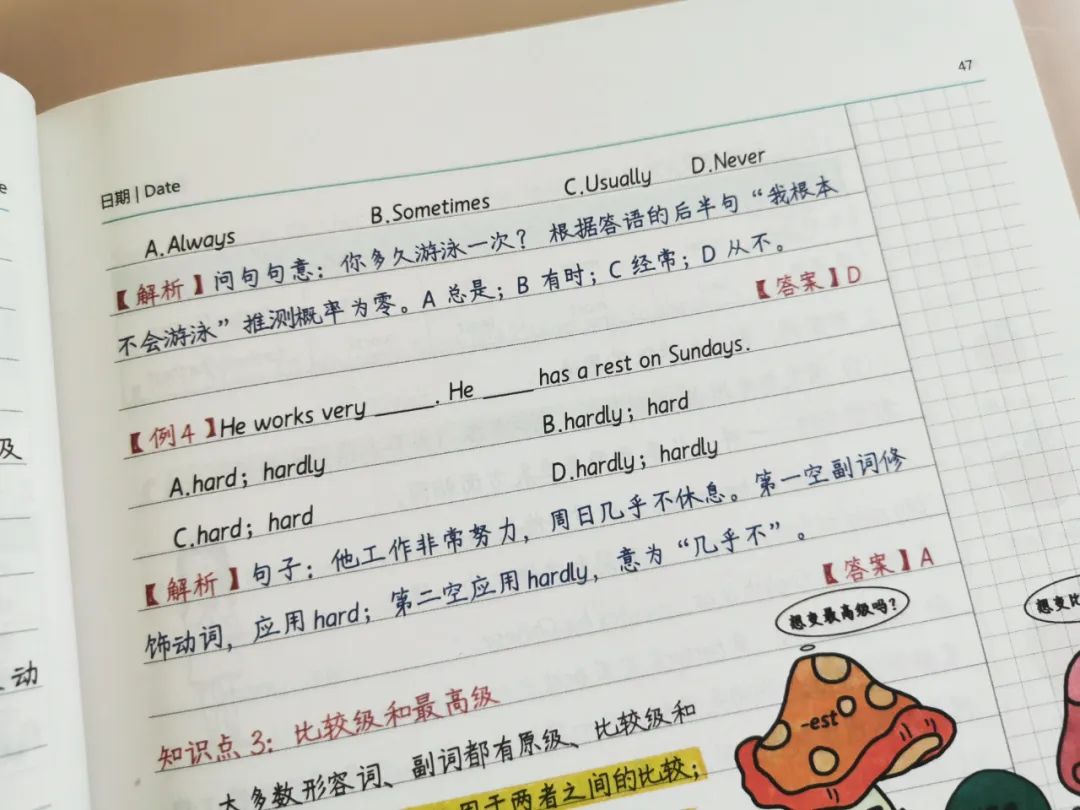 47
日期 | Date
A.Always B.Sometimes C.Usually D.Never
【解析】问句句意：你多久游泳一次？ 根据答语的后半句“我根本
不会游泳”推测概率为零。A 总是；B 有时；C 经常；D 从不。
【答案】D
【例4】He works very _____. He _____ has a rest on Sundays.
A.hard；hardly B.hardly；hard
C.hard；hard D.hardly；hardly
【解析】句子：他工作非常努力，周日几乎不休息。第一空副词修
饰动词，应用 hard；第二空应用 hardly，意为“几乎不”。
【答案】A
想变最高级吗？
想变比
-est
知识点 3：比较级和最高级
大多数形容词、副词都有原级、比较级和
用于两者之间的比较；
e
及
动